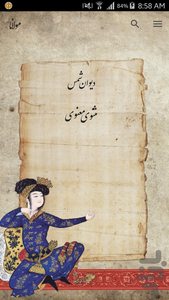 84% 8:58 AM
مولانا
دیوان شمس
مثنوی معنوی